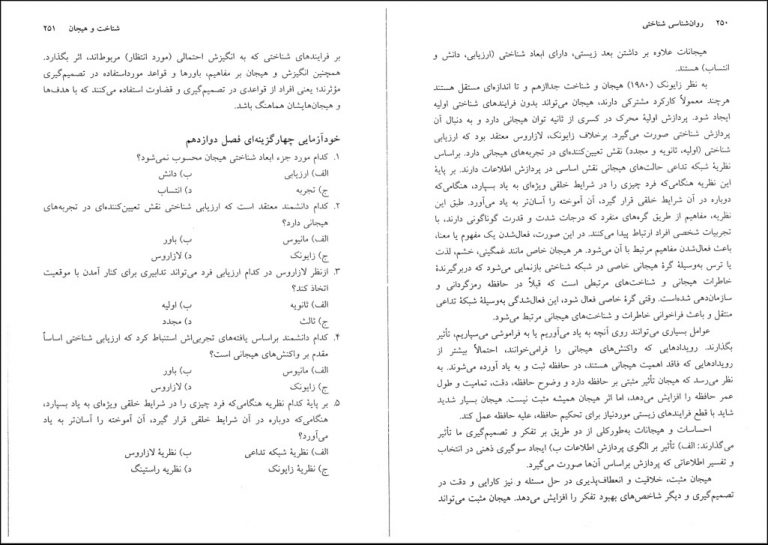 ۲۵۰ روان‌شناسی شناختی
هیجانات علاوه بر داشتن بعد زیستی، دارای ابعاد شناختی (ارزیابی، دانش و
انتساب) هستند.
به نظر زایونک (۱۹۸۰) هیجان و شناخت جداازهم و تا اندازه‌ای مستقل هستند
هرچند معمولاً کارکرد مشترکی دارند، هیجان می‌تواند بدون فرایندهای شناختی اولیه
ایجاد شود. پردازش اولیهٔ محرک در کسری از ثانیه توان هیجانی دارد و به دنبال آن
پردازش شناختی صورت می‌گیرد. برخلاف زایونک، لازاروس معتقد بود که ارزیابی
شناختی (اولیه، ثانویه و مجدد) نقش تعیین‌کننده‌ای در تجربه‌های هیجانی دارد. براساس
نظریهٔ شبکه تداعی حالت‌های هیجانی نقش اساسی در پردازش اطلاعات دارند. بر پایهٔ
این نظریه هنگامی‌که فرد چیزی را در شرایط خلقی ویژه‌ای به یاد بسپارد، هنگامی‌که
دوباره در آن شرایط خلقی قرار گیرد، آن آموخته را آسان‌تر به یاد می‌آورد. طبق این
نظریه، مفاهیم از طریق گره‌های منفرد که درجات شدت و قدرت گوناگونی دارند، با
تجربیات شخصی افراد ارتباط پیدا می‌کنند. در این صورت، فعال‌شدن یک مفهوم یا معنا،
باعث فعال‌شدن مفاهیم مرتبط با آن می‌شود. هر هیجان خاص مانند غمگینی، خشم، لذت
یا ترس به‌وسیلهٔ گرهٔ هیجانی خاصی در شبکه شناختی بازنمایی می‌شود که دربرگیرندهٔ
خاطرات هیجانی و شناخت‌های مرتبطی است که قبلاً در حافظه رمزگردانی و
سازمان‌دهی شده‌است. وقتی گرهٔ خاصی فعال شود، این فعال‌شدگی به‌وسیلهٔ شبکهٔ تداعی
منتقل و باعث فراخوانی خاطرات و شناخت‌های هیجانی مرتبط می‌شود.
عوامل بسیاری می‌توانند روی آنچه به یاد می‌آوریم یا به فراموشی می‌سپاریم، تأثیر
بگذارند. رویدادهایی که واکنش‌های هیجانی را فرامی‌خوانند، احتمالاً بیشتر از
رویدادهایی که فاقد اهمیت هیجانی هستند، در حافظه ثبت و به یاد آورده می‌شوند. به
نظر می‌رسد که هیجان تأثیر مثبتی بر حافظه دارد و وضوح حافظه، دقت، تمامیت و طول
عمر حافظه را افزایش می‌دهد، اما اثر هیجان همیشه مثبت نیست. هیجان بسیار شدید
شاید با قطع فرایندهای زیستی موردنیاز برای تحکیم حافظه، علیه حافظه عمل کند.
احساسات و هیجانات به‌طورکلی از دو طریق بر تفکر و تصمیم‌گیری ما تأثیر
می‌گذارند: الف) تأثیر بر الگوی پردازش اطلاعات ب) ایجاد سوگیری ذهنی در انتخاب
و تفسیر اطلاعاتی که پردازش براساس آن‌ها صورت می‌گیرد.
هیجان مثبت، خلاقیت و انعطاف‌پذیری در حل مسئله و نیز کارایی و دقت در
تصمیم‌گیری و دیگر شاخص‌های بهبود تفکر را افزایش می‌دهد. هیجان مثبت می‌تواند
شناخت و هیجان ۲۵۱
بر فرایندهای شناختی که به انگیزش احتمالی (مورد انتظار) مربوط‌اند، اثر بگذارد.
همچنین انگیزش و هیجان بر مفاهیم، باورها و قواعد مورداستفاده در تصمیم‌گیری
مؤثرند؛ یعنی افراد از قواعدی در تصمیم‌گیری و قضاوت استفاده می‌کنند که با هدف‌ها
و هیجان‌هایشان هماهنگ باشد.
خودآزمایی چهارگزینه‌ای فصل دوازدهم
۱. کدام مورد جزء ابعاد شناختی هیجان محسوب نمی‌شود؟
الف) ارزیابی ب) دانش
ج) تجربه د) انتساب
۲. کدام دانشمند معتقد است که ارزیابی شناختی نقش تعیین‌کننده‌ای در تجربه‌های
هیجانی دارد؟
الف) مانیوس ب) باور
ج) زایونک د) لازاروس
۳. ازنظر لازاروس در کدام ارزیابی فرد می‌تواند تدابیری برای کنار آمدن با موقعیت
اتخاذ کند؟
الف) ثانویه ب) اولیه
ج) ثالث د) مجدد
۴. کدام دانشمند براساس یافته‌های تجربی‌اش استنباط کرد که ارزیابی شناختی اساساً
مقدم بر واکنش‌های هیجانی است؟
الف) مانیوس ب) باور
ج) زایونک د) لازاروس
۵. بر پایهٔ کدام نظریه هنگامی‌که فرد چیزی را در شرایط خلقی ویژه‌ای به یاد بسپارد،
هنگامی‌که دوباره در آن شرایط خلقی قرار گیرد، آن آموخته را آسان‌تر به یاد
می‌آورد؟
الف) نظریهٔ شبکه تداعی ب) نظریهٔ لازاروس
ج) نظریهٔ زایونک د) نظریه راستینگ